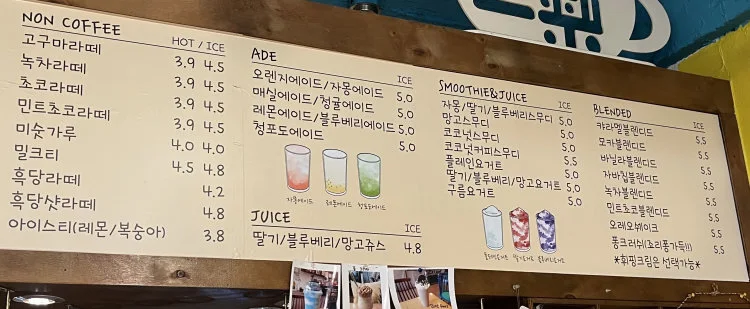 NON COFFEE
HOT / ICE
고구마라떼 3.9 4.5
녹차라떼 3.9 4.5
초코라떼 3.9 4.5
민트초코라떼 3.9 4.5
미숫가루 4.0 4.0
밀크티 4.5 4.8
흑당라떼 4.2
흑당샷라떼 4.8
아이스티(레몬/복숭아) 3.8
ADE
ICE
오렌지에이드/자몽에이드 5.0
매실에이드/청귤에이드 5.0
레몬에이드/블루베리에이드 5.0
청포도에이드 5.0
자몽에이드 레몬에이드 청포도에이드
JUICE
ICE
딸기/블루베리/망고쥬스 4.8
SMOOTHIE&JUICE
ICE
자몽/딸기/블루베리스무디 5.0
망고스무디 5.0
코코넛스무디 5.0
코코넛커피스무디 5.5
플레인요거트 5.0
딸기/블루베리/망고요거트 5.0
구름요거트 5.0
BLENDED
ICE
캬라멜블렌디드 5.5
모카블렌디드 5.5
바닐라블렌디드 5.5
자바칩블렌디드 5.5
녹차블렌디드 5.5
민트초코블렌디드 5.5
오레오쉐이크 5.5
퐁크러쉬(죠리퐁가득!!) 5.5
*휘핑크림은 선택가능*